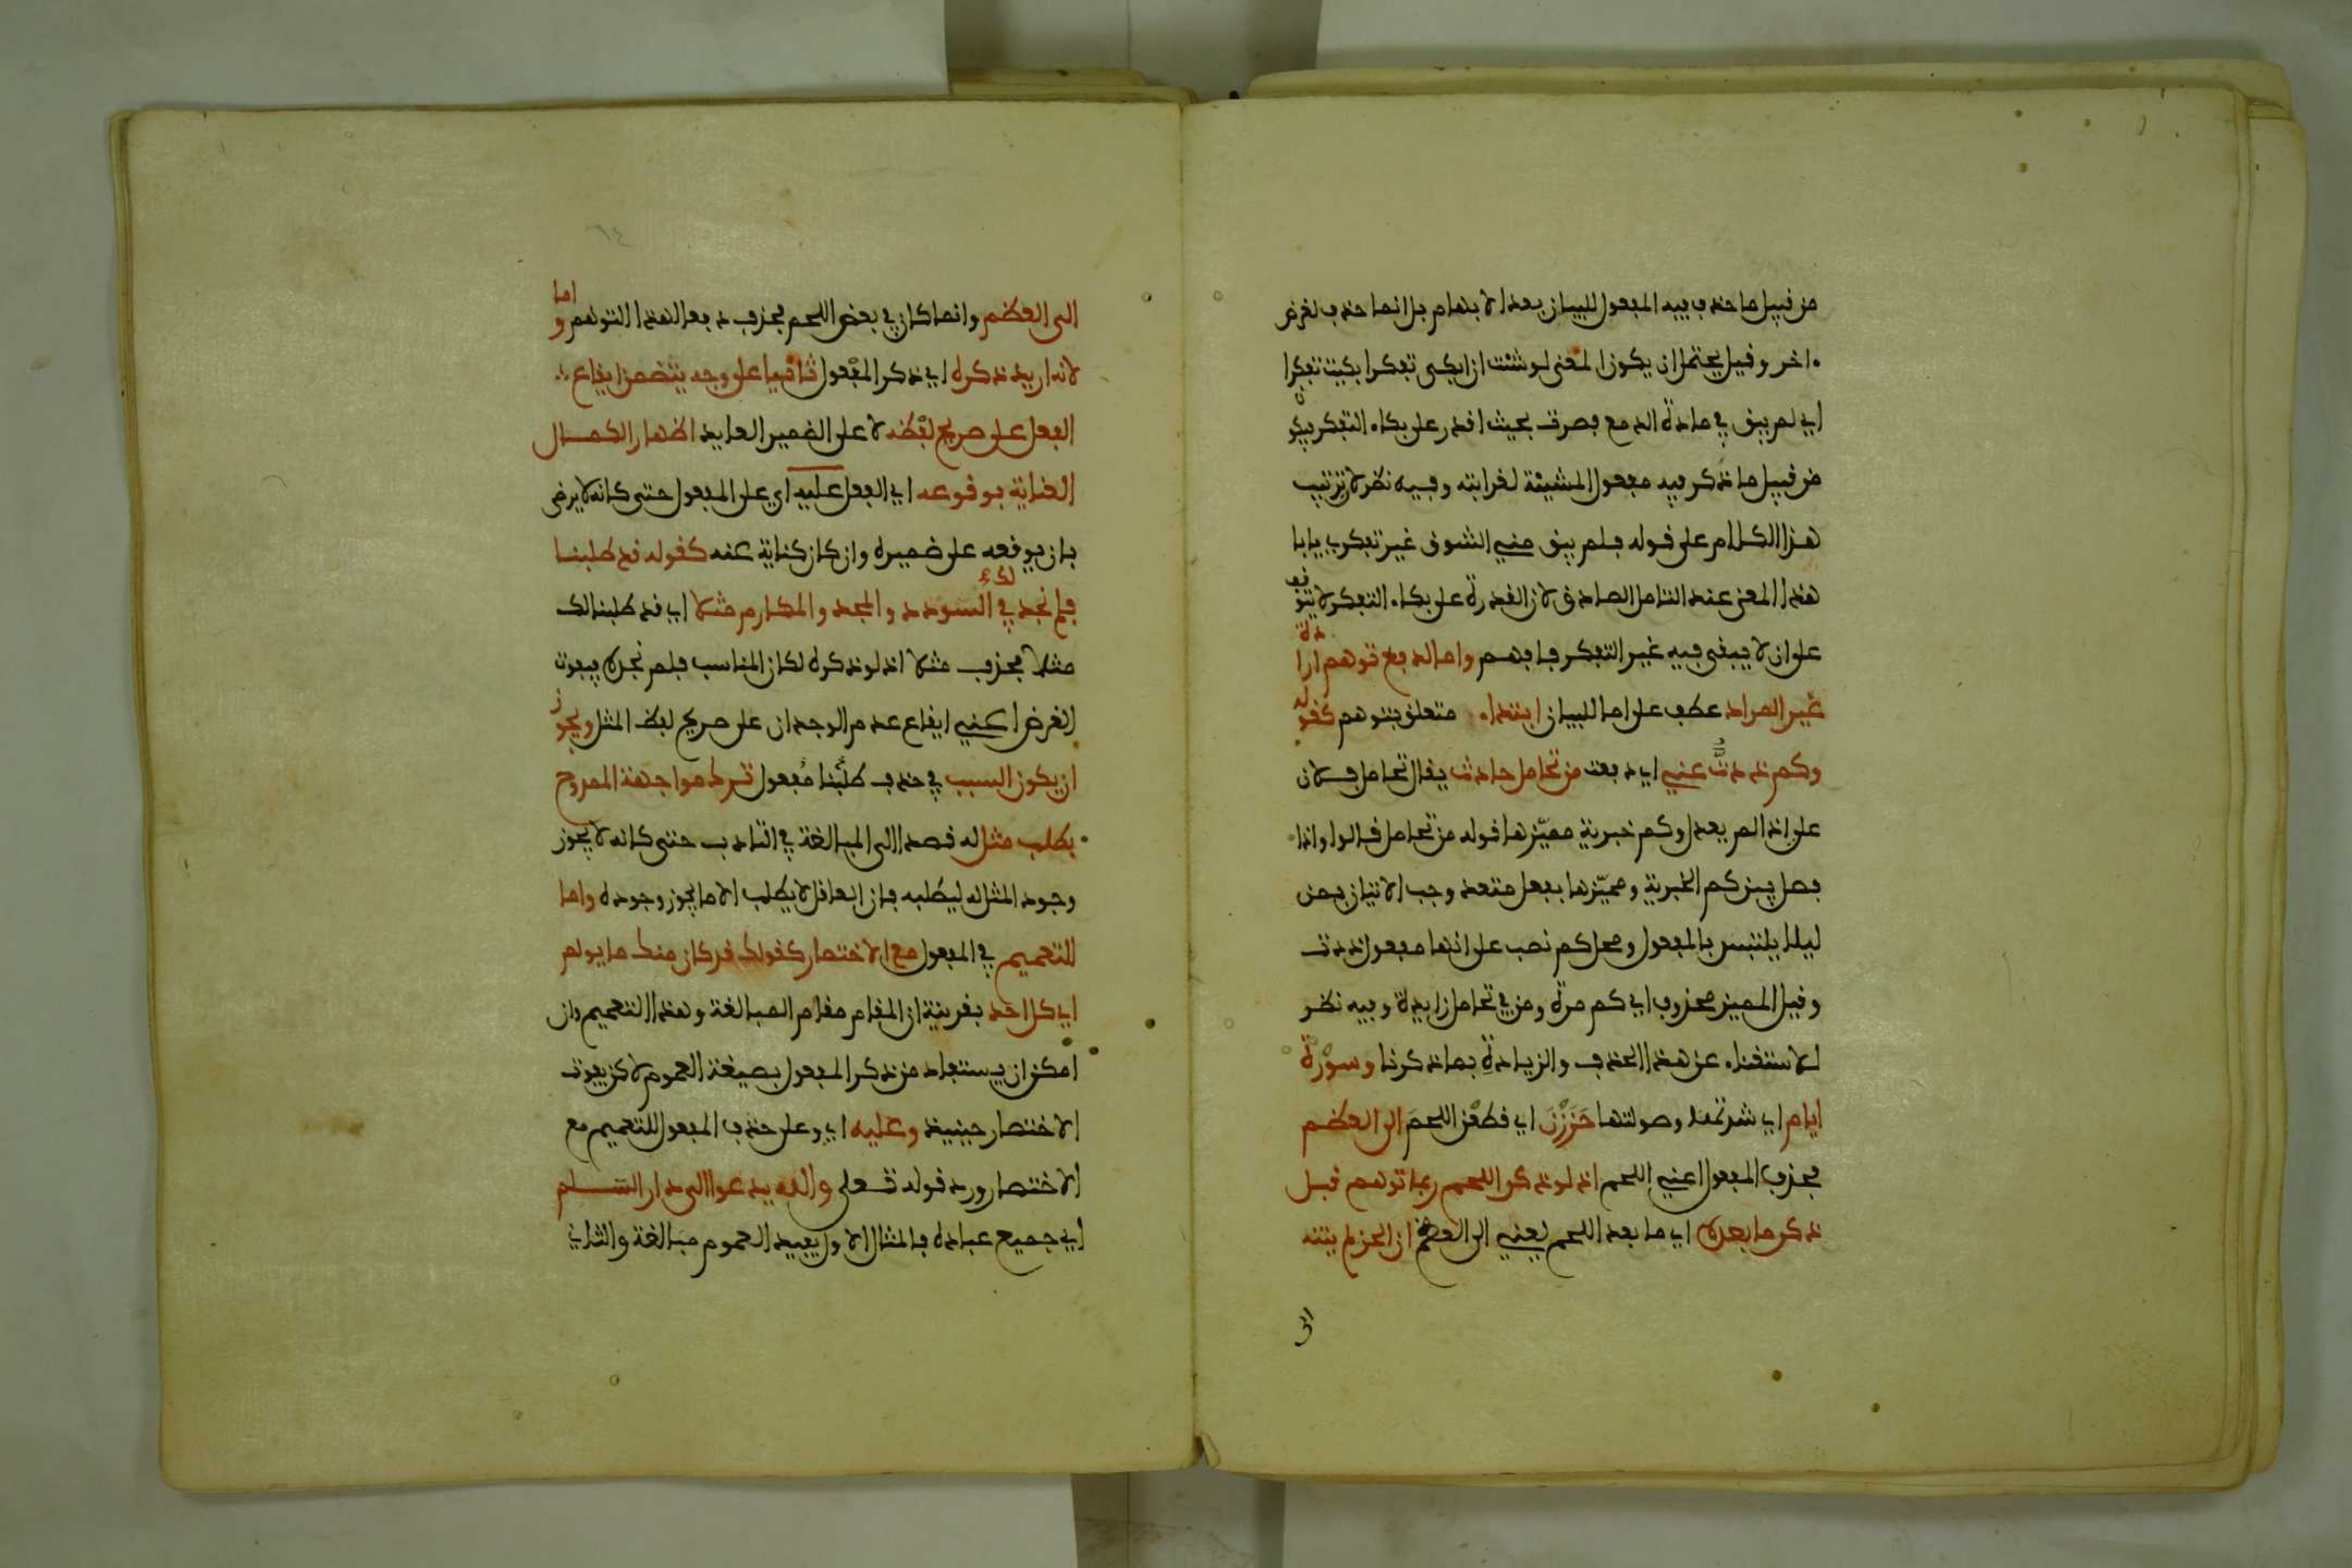 من قبيل ما حذف فيه المفعول للبيان بعد الابهام بل انما حذف لغرض
اخر وقيل يحتمل ان يكون المعنى لو شئت ان ابكى تفكرا بكيت تفكرا
اي لم يبق في مادة الدمع فصرت بحيث اقدر على بكاء التفكر فيكون
من قبيل ما ذكر فيه مفعول المشيئة لغرابته وفيه نظر لان ترتيب
هذا الكلام على قوله فلم يبق منى الشوق غير تفكرى يابا
هذا المعنى عند التامل الصادق لان القدرة على بكاء التفكر لا يتوقف
على ان لا يبقى فيه غير التفكر فافهم واما لدفع توهم ارادة
غير المراد عطف على اما للبيان ابتداء متعلق بتوهم كقوله
وكم ذدت عني اي دفعت من تحامل حادث يقال تحامل فلان
على اذا لم يعدل وكم خبرية مميزها قوله من تحامل قالوا واذا
فصل بين كم الخبرية ومميزها بفعل متعد وجب الاتيان بمن
ليلا يلتبس بالمفعول ومحل كم نصب على انها مفعول ذدت
وقيل المميز محذوف اي كم مرة ومن في تحامل زايدة وفيه نظر
للاستغناء عن هذا الحذف والزيادة بما ذكرنا وسورة
ايام اي شدتها وصولتها حززن اي قطعن اللحم الى العظم
فحذف المفعول اعني اللحم اذ لو ذكر اللحم ربما توهم قبل
ذكر ما بعده اي ما بعد اللحم يعني الى العظم ان الحز لم ينته
الى
الى العظم وانما كان في بعض اللحم فحذف دفعا لهذا التوهم واما
لانه اريد ذكره اي ذكر المفعول ثانيا على وجه يتضمن ايقاع
الفعل على صريح لفظه لا على الضمير العايد اظهارا لكمال
العناية بوقوعه اي الفعل عليه اي على المفعول حتى كانه لا يرضى
بان يوقعه على ضميره وان كان كناية عنه كقوله قد طلبنا
فلم نجد لك في السودد والمجد والمكارم مثلا اي قد طلبنا لك
مثلا فحذف مثلا اذ لو ذكره لكان المناسب فلم نجده فيفوت
الغرض اعني ايقاع عدم الوجدان على صريح لفظ المثل ويجوز
ان يكون السبب في حذف طلبنا مفعول ترك مواجهة الممدوح
بطلب مثل له قصدا الى المبالغة في التادب حتى كانه لا يجوز
وجود المثل له ليطلبه فان العاقل لا يطلب الا ما يجوز وجوده واما
للتعميم في المفعول مع الاختصار كقولك قد كان منك ما يولم
اي كل احد بقرينة ان المقام مقام المبالغة وهذا التعميم وان
امكن ان يستفاد من ذكر المفعول بصيغة العموم لاكن يفوت
الاختصار حينيذ وعليه اي وعلى حذف المفعول للتعميم مع
الاختصار ورد قوله تعلى والله يدعوا الى دار السلم
اي جميع عباده فالمثال الاول يفيد العموم مبالغة والثاني